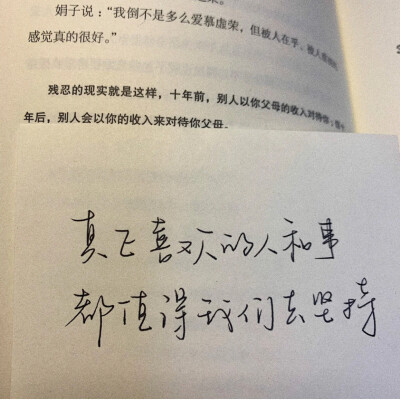 娟子说：“我倒不是多么爱慕虚荣，但被人在乎、被人
感觉真的很好。”
残忍的现实就是这样，十年前，别人以你父母的收入对待你；
年后，别人会以你的收入来对待你父母。
真正喜欢的人和事
都值得我们去坚持